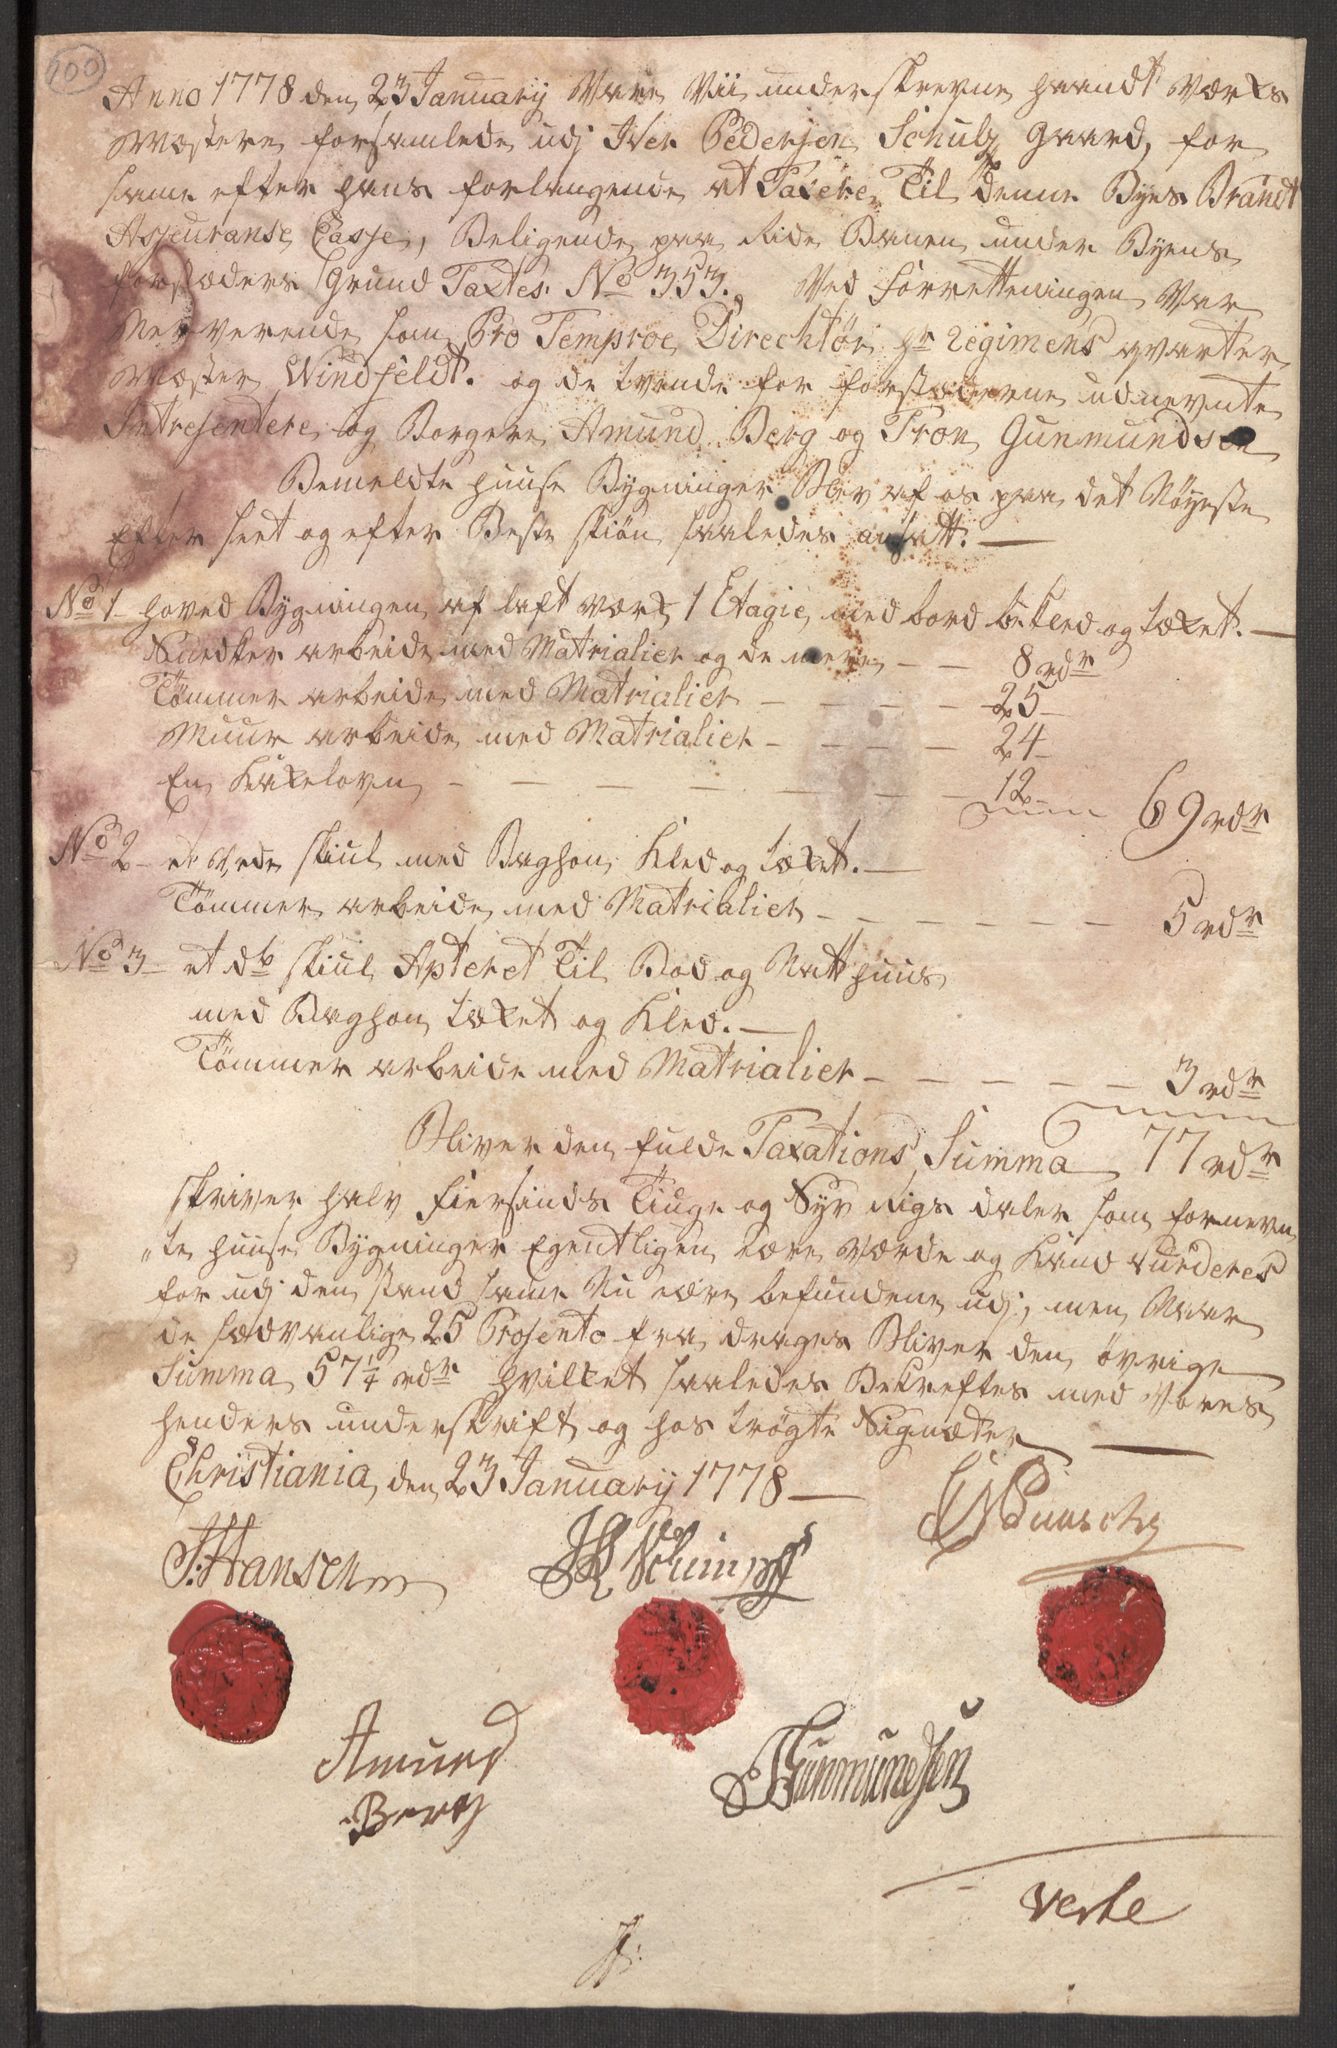 100
Anno 1778 den 23 January Vare Vii underskrevne Haandt Værks
Mæstere forsamlede udj Iver Pedersen Schulz Gaard, for
same efter hans forlangende at Taxere Til denne Byes Brandt
Assurance Casse, Beligende paa Ride Banen under Byens
forstæders Grund Taxtes No 353. Ved Forrettningen Var
Nerverende som Pro Temproe Direchtør Hr Regimens qvarter
Mæster Windfeldt. og de tvende for forstæderne udnevnte
Intresentere og Borgere Amund Berg og Tron Gunmundsen
Bemeldte Huuse Bygninger Blev af os paa det Nøyeste
Efter seet og efter Beste skiøn saaledes ansatt. —
No 1 Hoved Bygningen af laft værk 1 Etagie med bord bekled og tæket. —
Snedker arbeide med Matrialier og de mere — — 8 rdr
Tømmer arbeide med Matrialier — — — — — 25 —
Muur arbeide med Matrialier — — — — — 24 —
En Kakelovn — — — — — — — 12 — 69 rdr
No 2 et Vede skiul med Baghon Kled og tæket. —
Tømmer arbeide med Matrialier — — — — — — 5 rdr
No 3 et do skiul Apteret Til Bod og Natthuus
med Baghon tæket og Kled. —
Tømmer arbeide med Matrialier — — — — — — 3 rdr
Bliver den fulde Taxations Summa 77 rdr
skriver halv Fiersinds Tiuge og Syv Rigs daler som fornevn
„te Huuse Bygninger Egentligen ere værde og Kand vurderes
for udj den stand same Nu ere befundene udj, men Naar
de sædvanlige 25 Prosento fra drages Bliver den øvrige
Summa 57 1/4 rdr hvilket saaledes Bekreftes med Vores
henders underskrift og hos trøgte Signæter —
Christiania den 23 January 1778 —
J: Hansen Schimpff
Amund Gunmundsen
Berg
verte